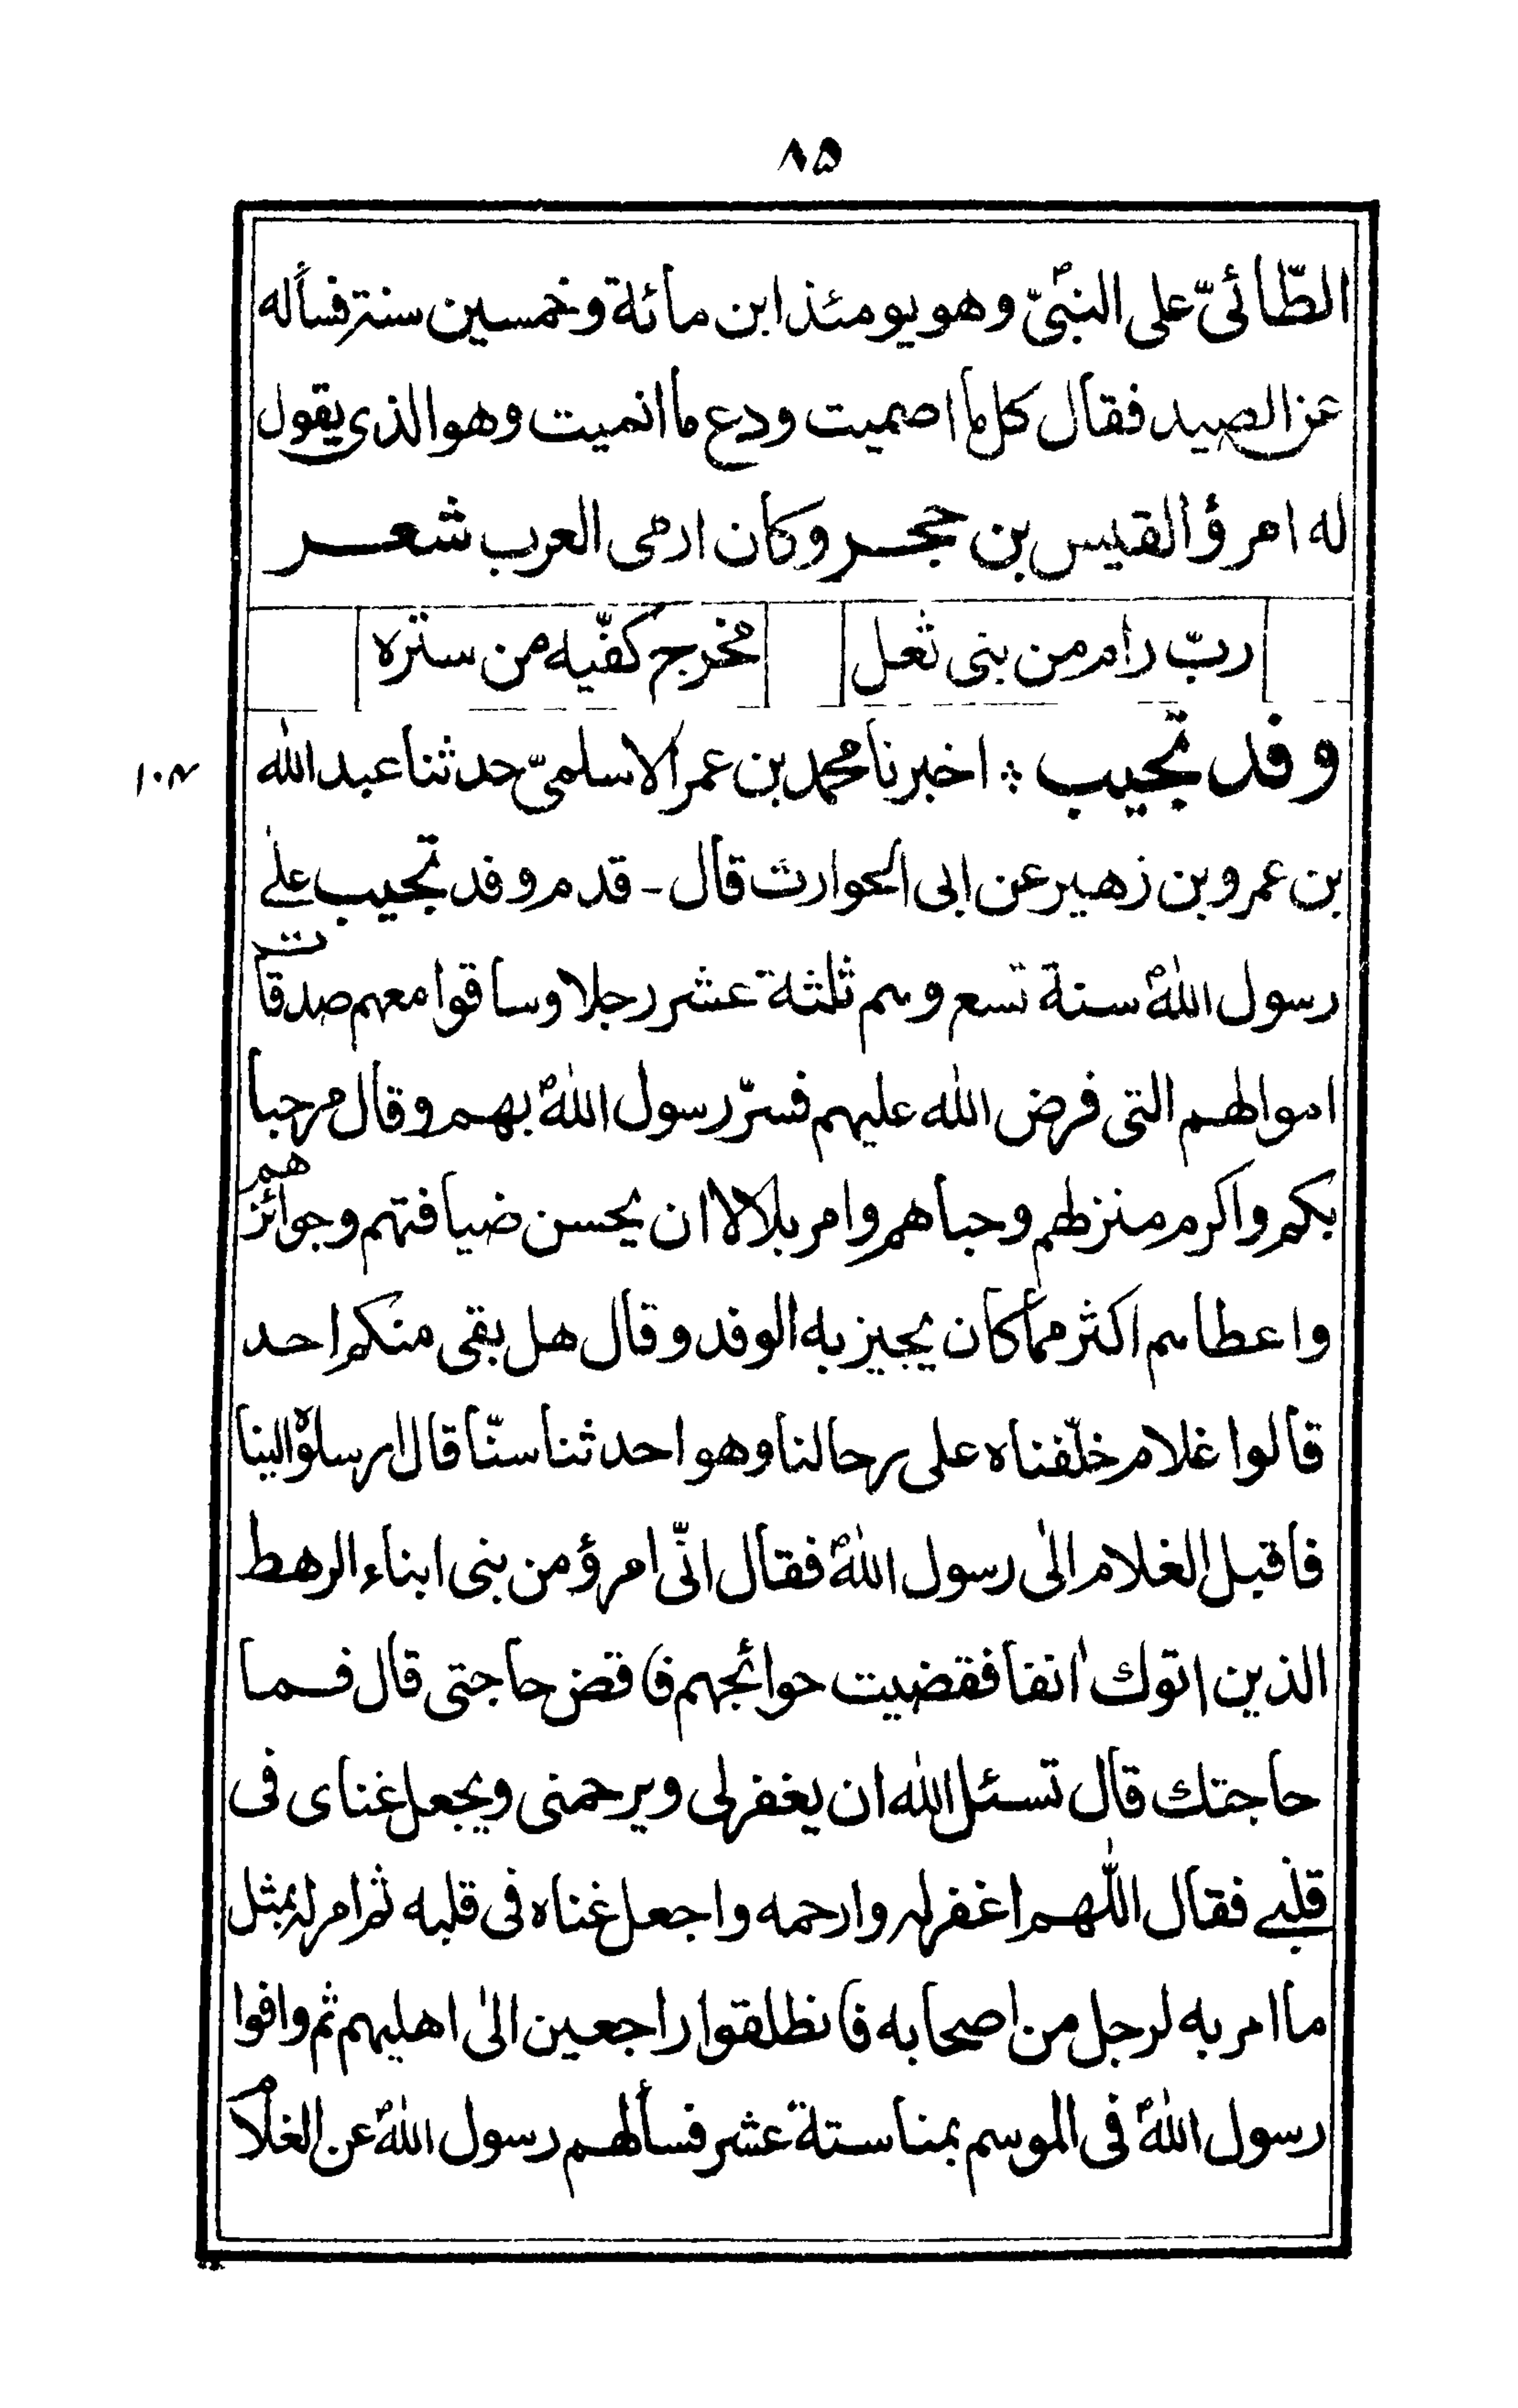 ۸۵
الطّائىّ على النبىّؐ وهو يومئذ ابن مائة وخمسين سنة فسأله
عن الصيد فقال كل ما اصميت ودع ما انميت وهو الذى يقول
له امرؤ القيس بن حجر وكان ارمى العرب شعر
ربّ رام من بنى ثعل مخرج كفّيه من ستره
وفد تجيب ؞ اخبرنا محمد بن عمر الاسلمىّ حدثنا عبد الله
بن عمرو بن زهير عن ابى الحوارث قال - قدم وفد تجيب علے
رسول اللهؐ سنة تسع وهم ثلثة عشر رجلا وساقوا معهم صدقات
اموالهم التى فرض الله عليهم فسرّ رسول اللهؐ بهم وقال مرحبا
بكم واكرم منزلهم وحباهم وامر بلالا ان يحسن ضيافتهم وجوائزهم
واعطاهم اكثر مما كان يجيز به الوفد وقال هل بقى منكم احد
قالوا غلام خلّفناه على رحالنا وهو احدثنا سنّا قال ارسلوه الينا
فاقبل الغلام الىٰ رسول اللهؐ فقال انّى امرؤ من بنى ابناء الرهط
الذين اتوك اٰنفا فقضيت حوائجهم فاقض حاجتى قال فما
حاجتك قال تسئل الله ان يغفر لى ويرحمنى ويجعل غناى فى
قلبے فقال اللّٰهم اغفر له وارحمه واجعل غناه فى قلبه ثم امر له بمثل
ما امر به لرجل من اصحابه فانطلقوا راجعين الىٰ اهليهم ثم وافوا
رسول اللهؐ فى الموسم بمنا ستة عشر فسألهم رسول اللهؐ عن الغلام